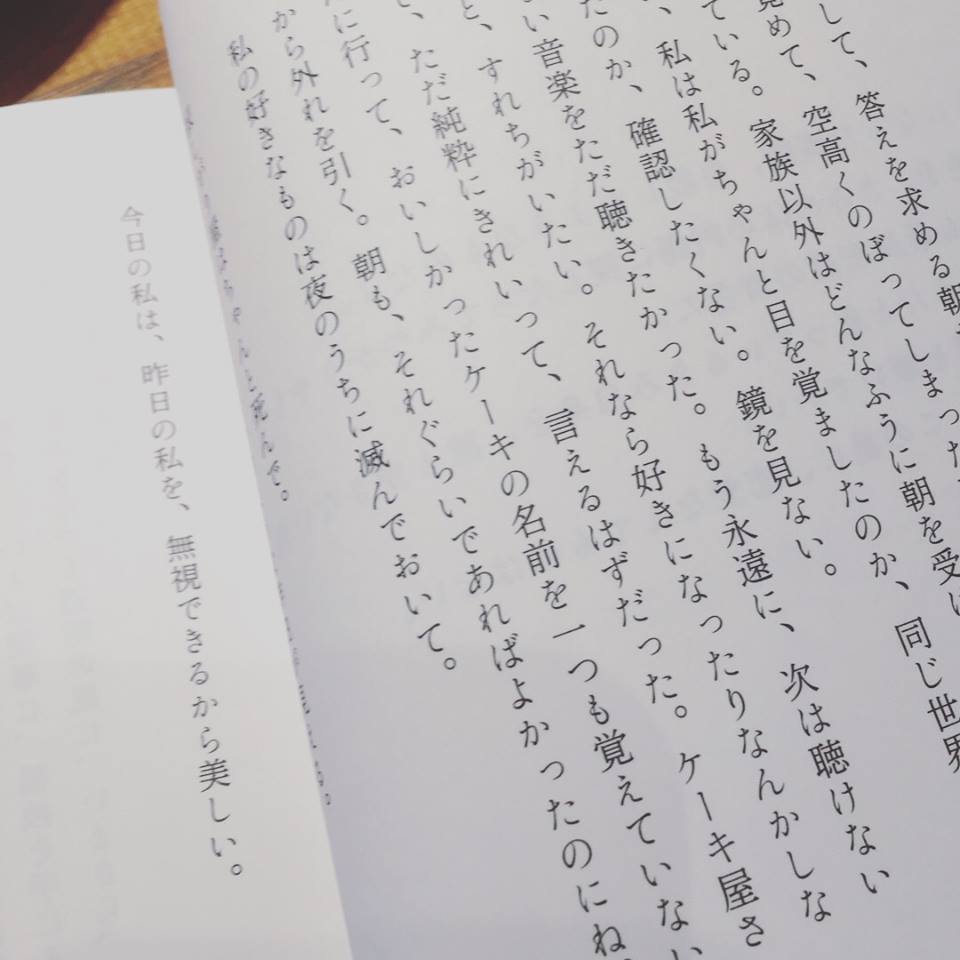 して、答えを求める朝
覚めて、空高くのぼってしまった
ている。家族以外はどんなふうに朝を受け
、私は私がちゃんと目を覚ましたのか、同じ世界
たのか、確認したくない。鏡を見ない。
い音楽をただ聴きたかった。もう永遠に、次は聴けない
と、すれちがいたい。それなら好きになったりなんかしな
、ただ純粋にきれいって、言えるはずだった。ケーキ屋さ
に行って、おいしかったケーキの名前を一つも覚えていない
から外れを引く。朝も、それぐらいであればよかったのにね
私の好きなものは夜のうちに滅んでおいて。
ちゃんと死んで。
今日の私は、昨日の私を、無視できるから美しい。